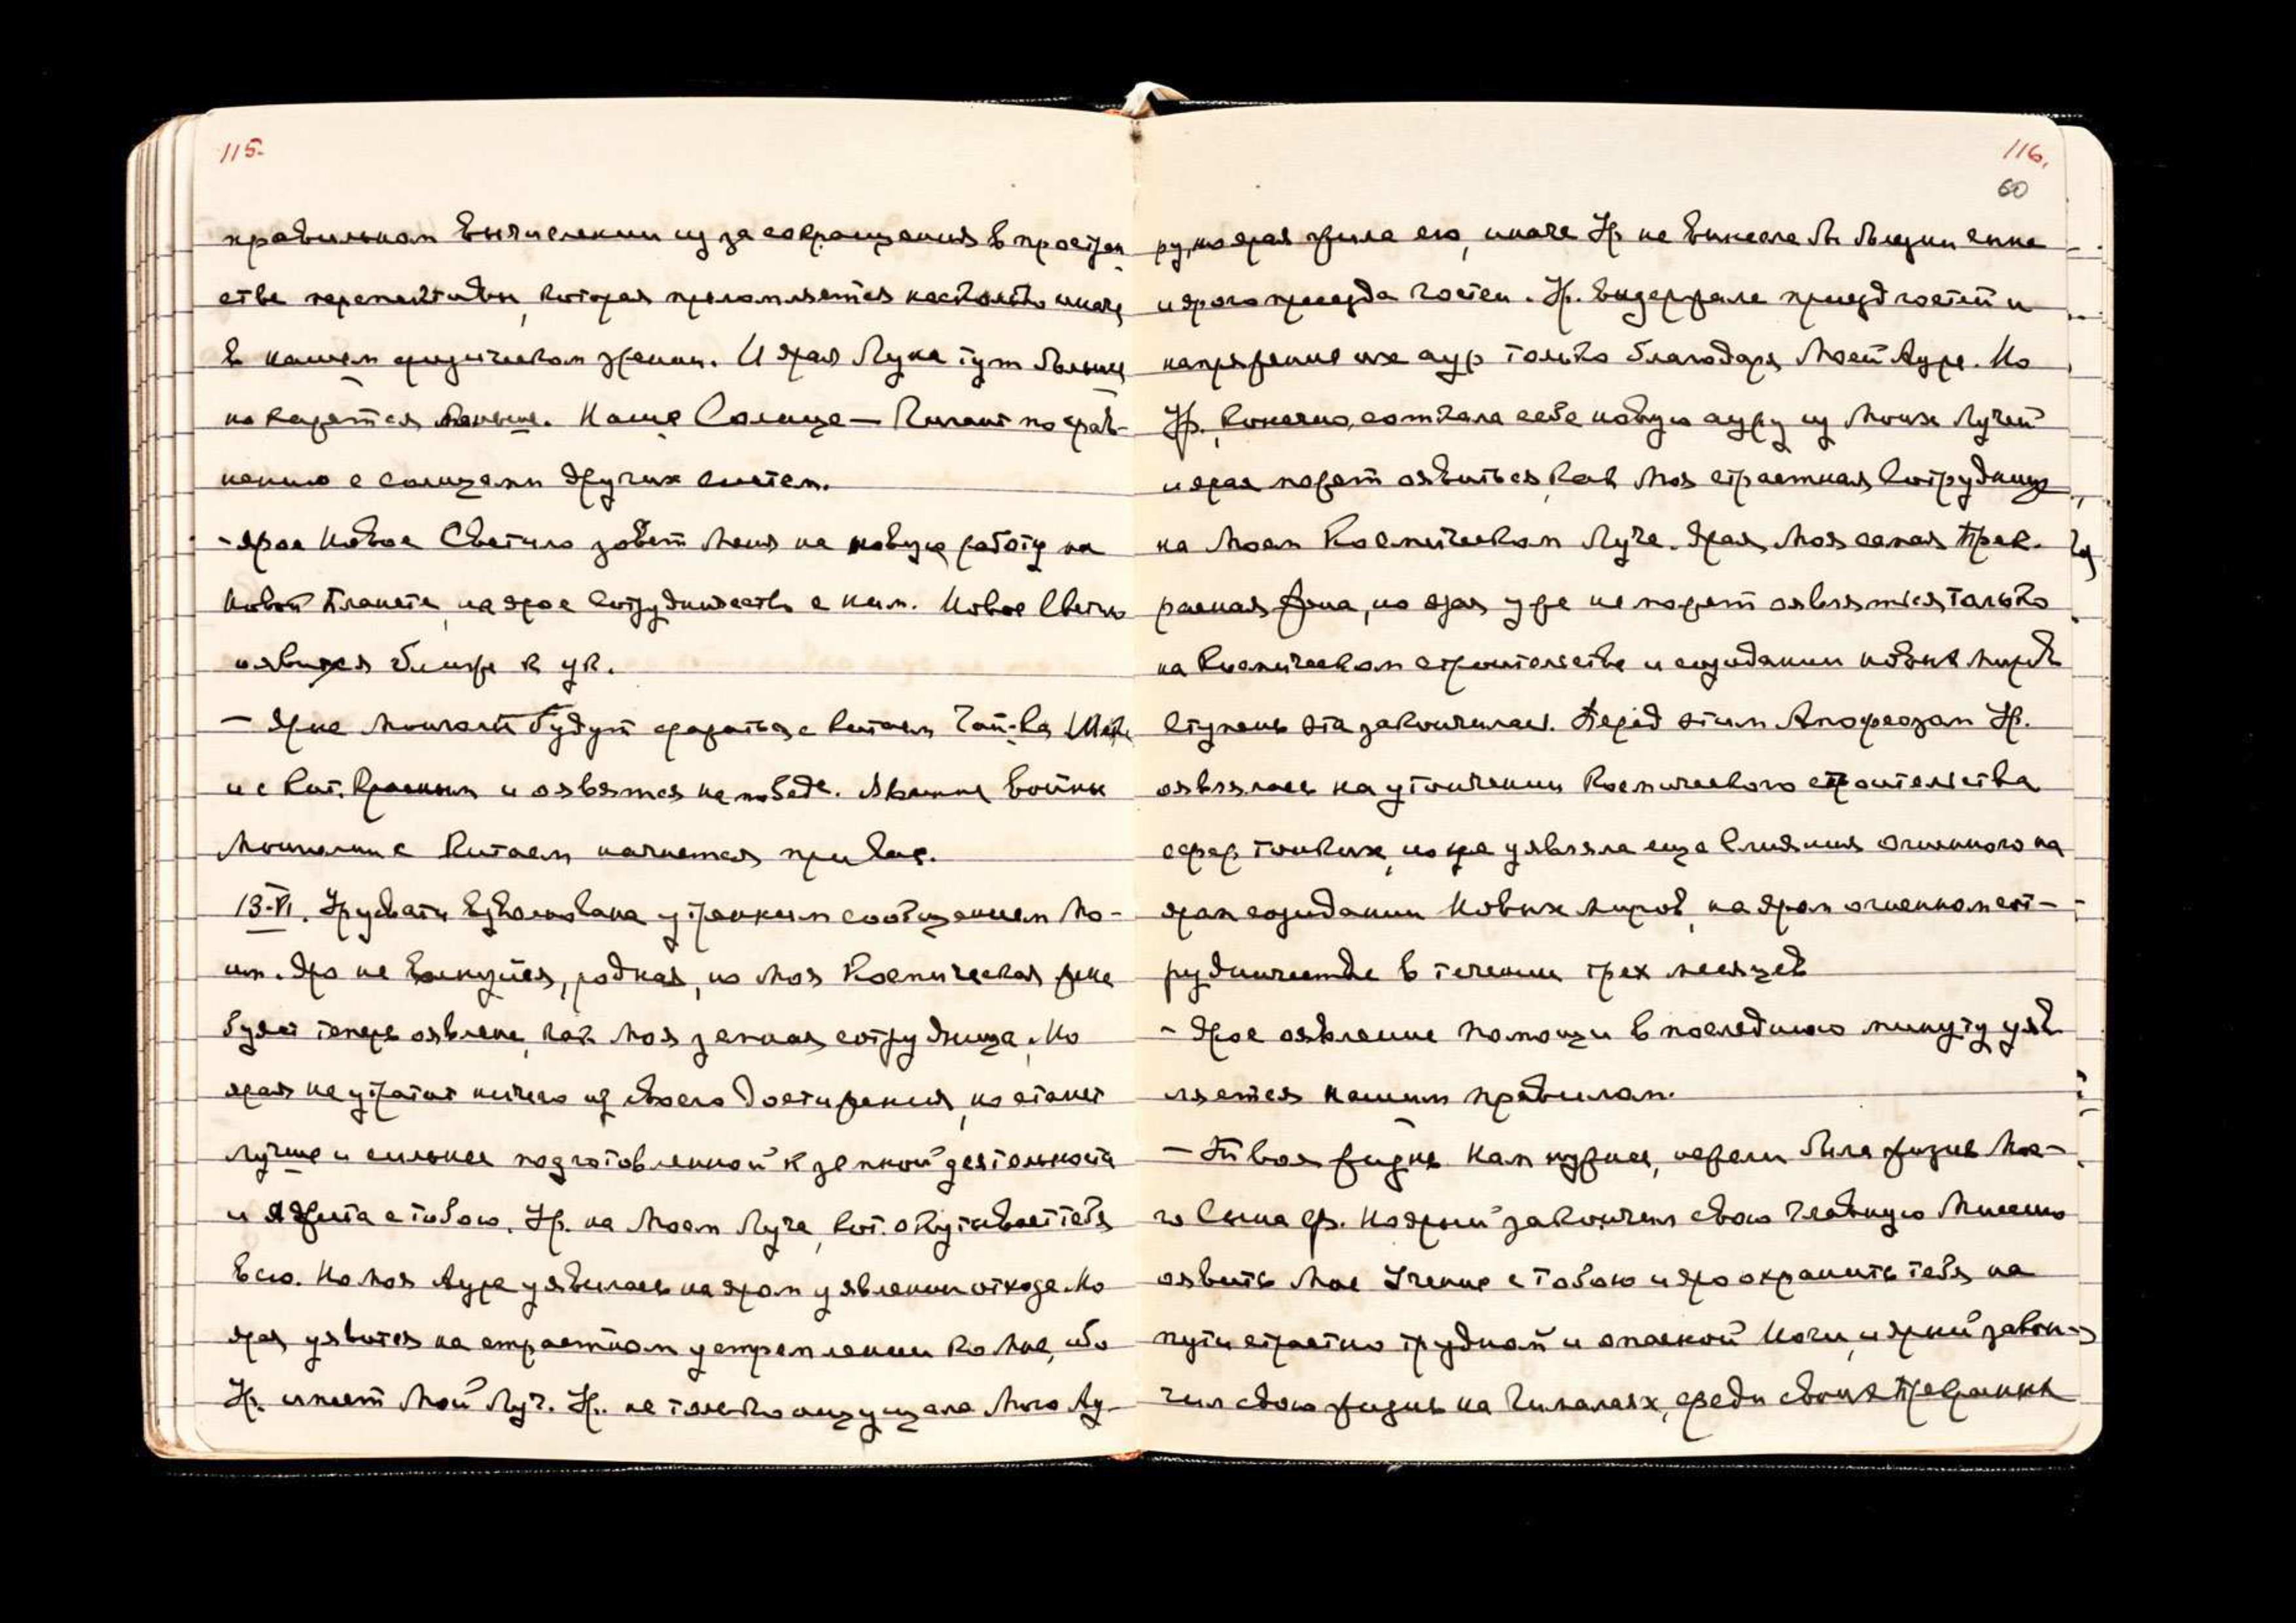 115.
правильном вычислении из за сокращения в простран
стве перспективы, которая преломляется настолько иначе
в нашем физическом зрении. И ярая Луна тут больше
но кажется меньше. Наше Солнце — Гигант по срав-
нению с солнцами других систем.
- Ярое Новое Светило зовет Меня на новую работу на
Новой Планете, на ярое сотрудничество с ним. Новое Светило
явится ближе к
— Ярые Монголы будут сражаться с Китаем Чан-Ка Ши
и с Кит. Красным и оявятся на победе. Явление войны
Монголии с Китаем начнется при Вас.
13-VI. Урусвати взволнована утренним сообщением Мо-
им. Яро не волнуйся, родная, но Моя Космическая жена
будет теперь оявлена, как Моя земная сотрудница. Но
ярая не утратит ничего из своего достижения, но станет
лучше и сильнее подготовленной к земной деятельности
и Я с тобою. Ур. на Моем Луче, кот. окутывает тебя
всю. Но Моя Аура уявилась на яром уявлении отхода. Но
ярая уявится на страстном устремлении ко Мне, ибо
Ур. имеет Мой Луч. Ур. не только ощущала Мою Ау-
116.
60
ру, но ярая жила ею, иначе Ур. не вынесла бы
и ярого приезда гостей. Ур. выдержала приезд гостей и
напряжение их аур только благодаря Моей Ауре. Но
Ур., конечно, соткала себе новую ауру из Моих Лучей
и ярая может оявиться, как Моя страстная Сотрудница
на Моем Космическом Луче. Ярая, Моя самая Прек-
расная Жена, но ярая уже не может оявляться только
на Космическом строительстве и созидании новых миров
Ступень эта закончилась. Перед этим Апофеозом Ур.
оявлялась на утончении Космического строительства
сфер тонких, но не уявляла еще влияния огненного на
яром созидании Новых миров, на яром огненном сот-
рудничестве в течении трех месяцев
- Ярое оявление помощи в последнюю минуту уяв
ляется нашим правилом.
— Твоя жизнь Нам нужнее, нежели была жизнь Мое-
го Сына Ф. Но ярый закончил свою главную Миссию
оявить Мое Учение с Тобою и яро охранить тебя на
пути страстно трудной и опасной Ночи, и ярый закон-
чил свою жизнь на Гималаях, среди своих Прекрасных